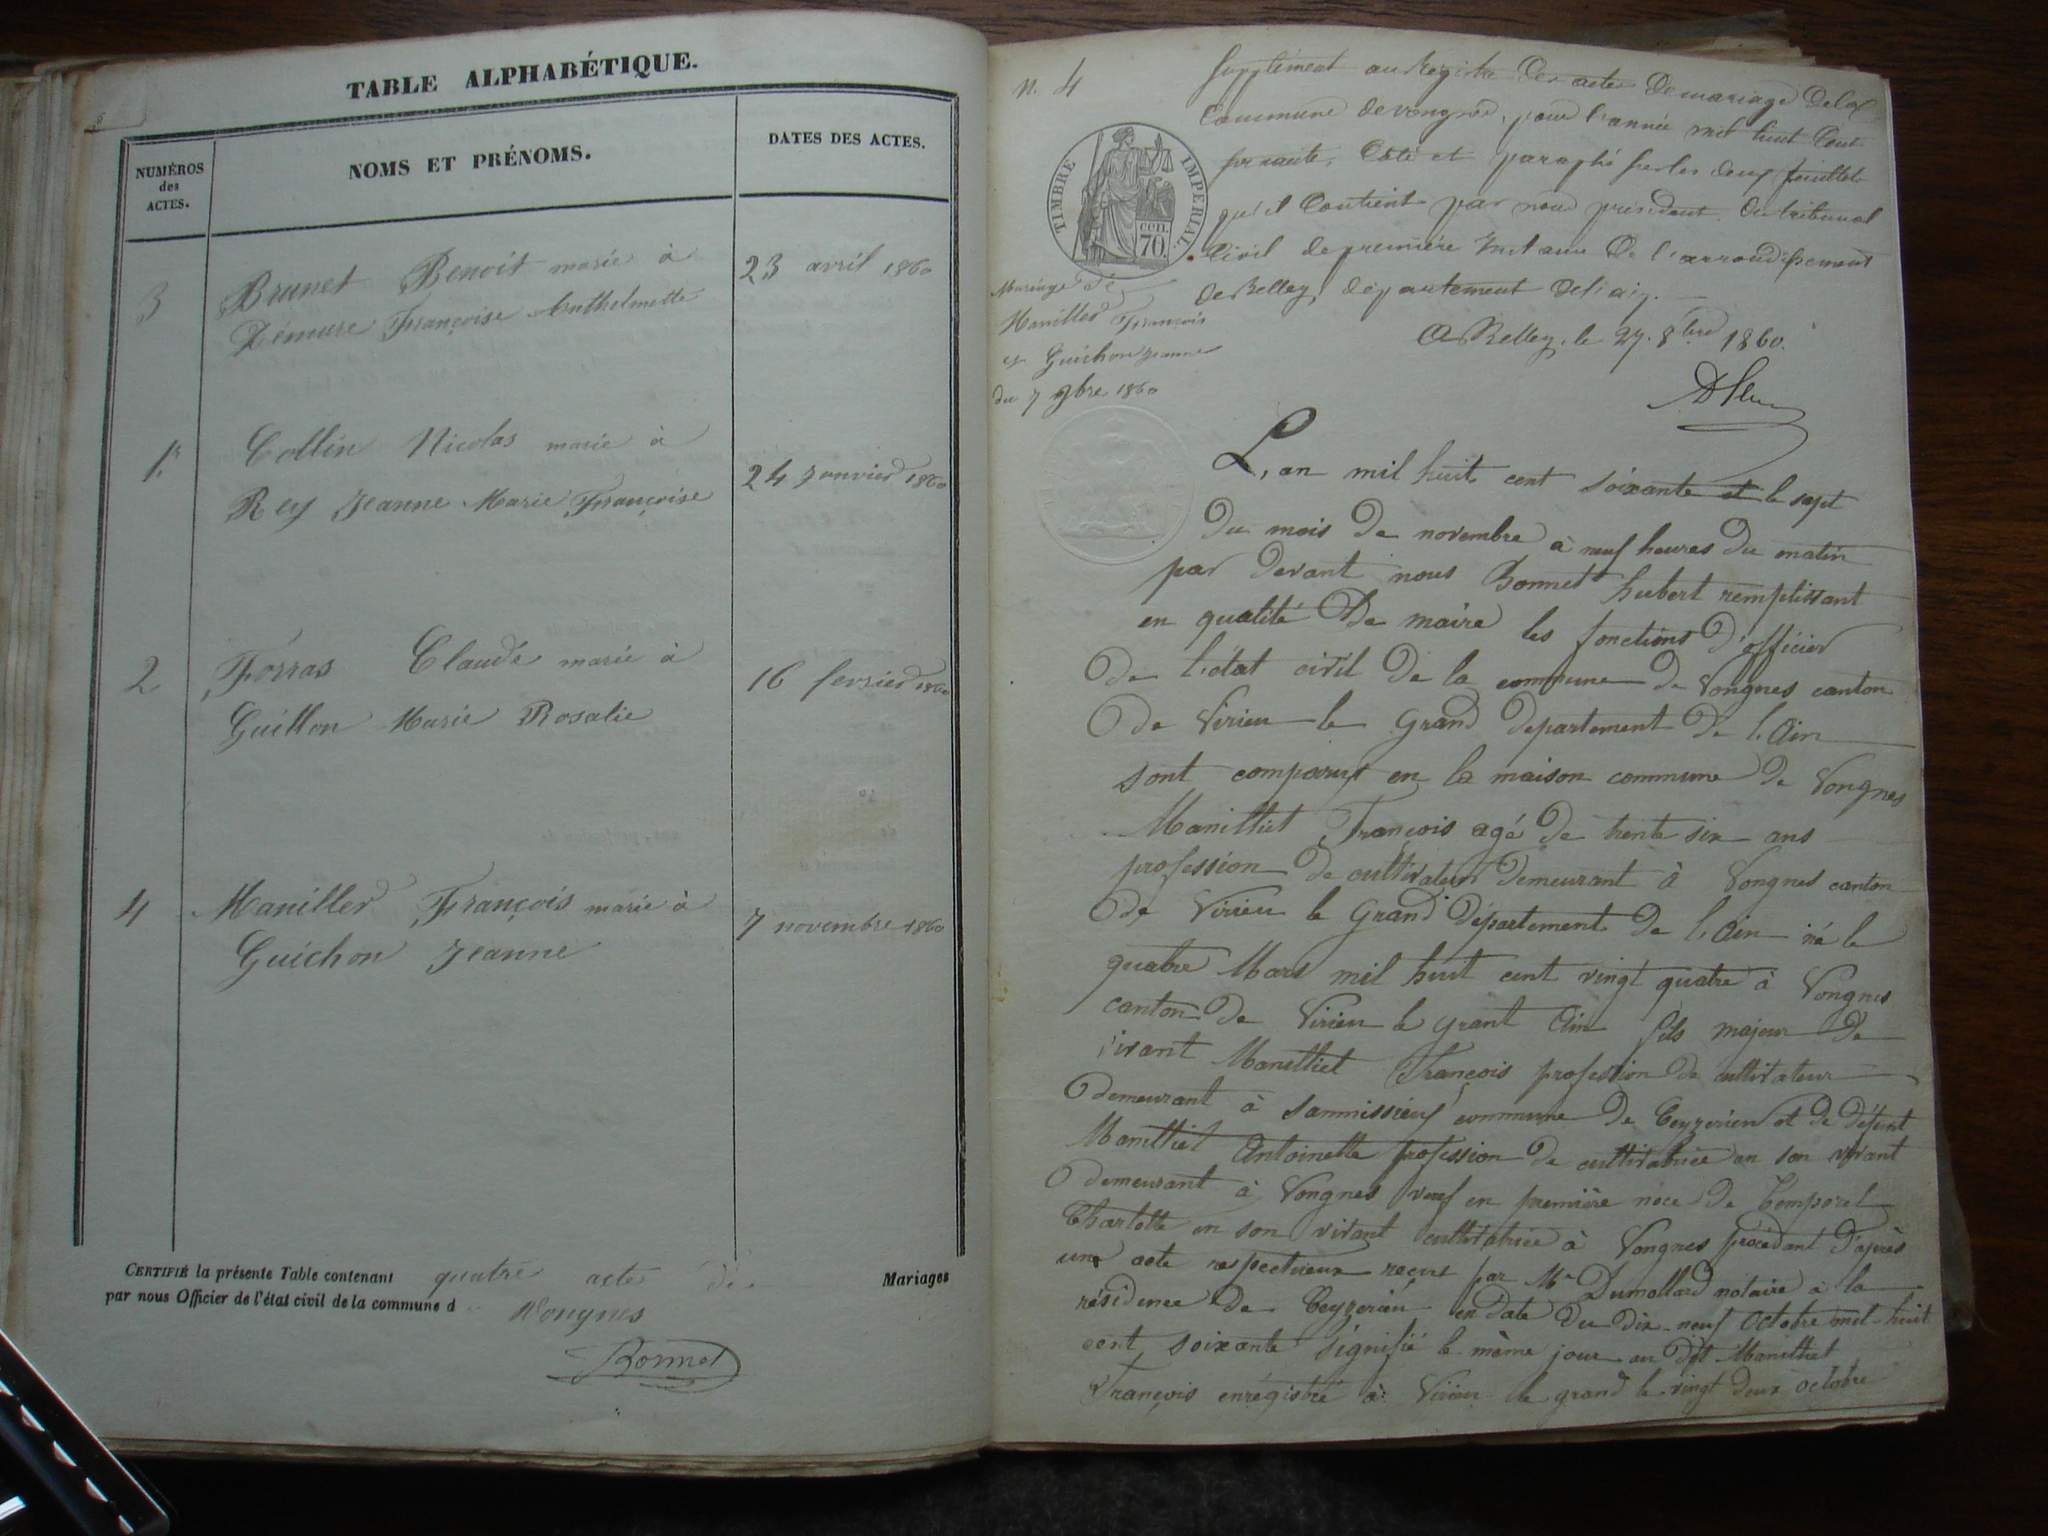 TABLE ALPHABÉTIQUE.
NUMÉROS
des
ACTES.
NOMS ET PRÉNOMS.
DATES DES ACTES.
3 Brunet Benoit marié à 23 avril 1860
Démure Françoise Anthelmette
1er Collin Nicolas marié à 24 Janvier 1860
Rey Jeanne Marie Françoise
2 Forras Claude marié à 16 fevrier 1860
Guillon Marie Rosalie
4 Maniller François marié à 7 novembre 1860
Guichon Jeanne
CERTIFIÉ la présente Table contenant quatre acte de Mariages
par nous Officier de l'état civil de la commune d Vongnes
Bonnet
N. 4
Supplément au Registre Des actes De mariage Dela
Commune de vongnes, pour l'année mil huit Cent
soixante, Coté et paraphé sur les deux feuillets
qu'il Contient par nous président du tribunal
Civil de première Instance De l'arrondissement
de Belley, département del'ain.
A Belley, le 27. 8bre 1860.
TIMBRE IMPERIAL.
CEN.
70.
Mariage de
Maniller François
et Guichon Jeanne
du 7 9bre 1860
L'an mil huit cent soixante et le sept
Du mois De novembre à neuf heures Du matin
par Devant nous Bonnet hubert remplissant
en qualité De maire les fonctions D'officier
De l'état civil De la commune De Vongnes canton
De Virieu le Grand Departement De l'Ain
sont comparus en la maison commune De Vongnes
Manilliet François agé De trente six ans
profession De cultivateur Demeurant à Vongnes canton
De Virieu le Grand Département De l'Ain né le
quatre Mars mil huit cent vingt quatre à Vongnes
canton De Virieu le grant Ain fils majeur De
vivant Manilliet François profession De cultivateur
Demeurant à Sammissieux commune De Ceyzerieu et De Défunt
Manilliet Antoinette profession De cultivatrice en son vivant
Demeurant à Vongnes veuf en première noce De Temporel
Charlotte en son vivant cultivatrice à Vongnes procedant D'après
une acte respectueux reçus par Me Dumollard notaire à la
résidence De Ceyzerieu en Date Du Dix-neuf Octobre mil-huit
cent soixante signifié le même jour au Dit Manilliet
François enrégistré à Virieu le grand le vingt Deux octobre